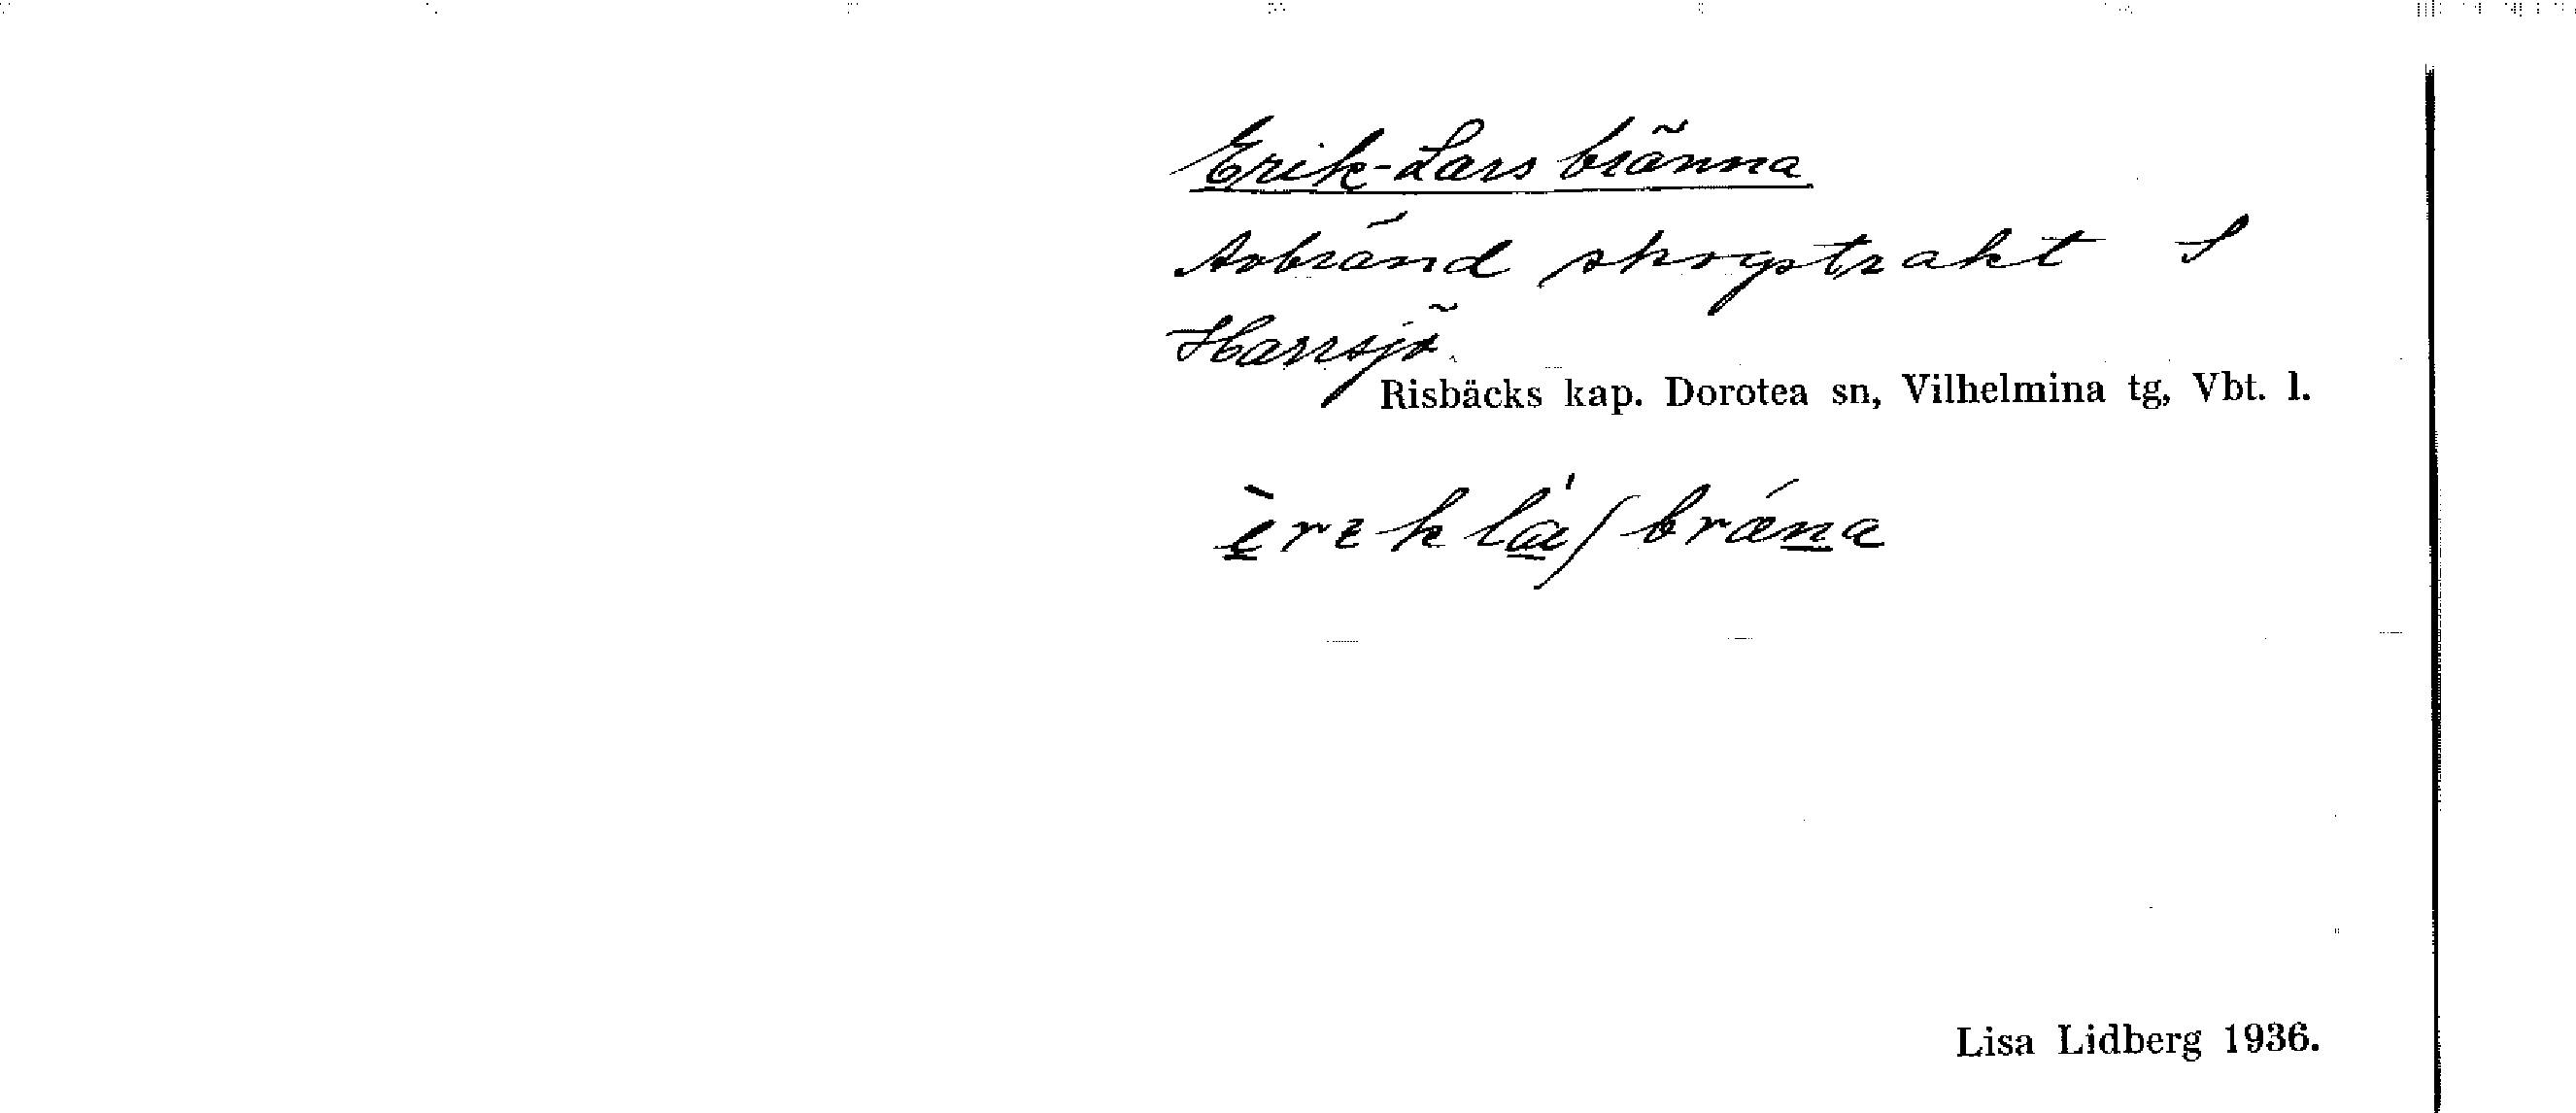 Erik-Lars bränna
Avbränd skogstrakt S
Harrsjö.
Risbäcks kap. Dorotea sn, Vilhelmina tg, Vbt. l.
Lisa Lidberg 1936.